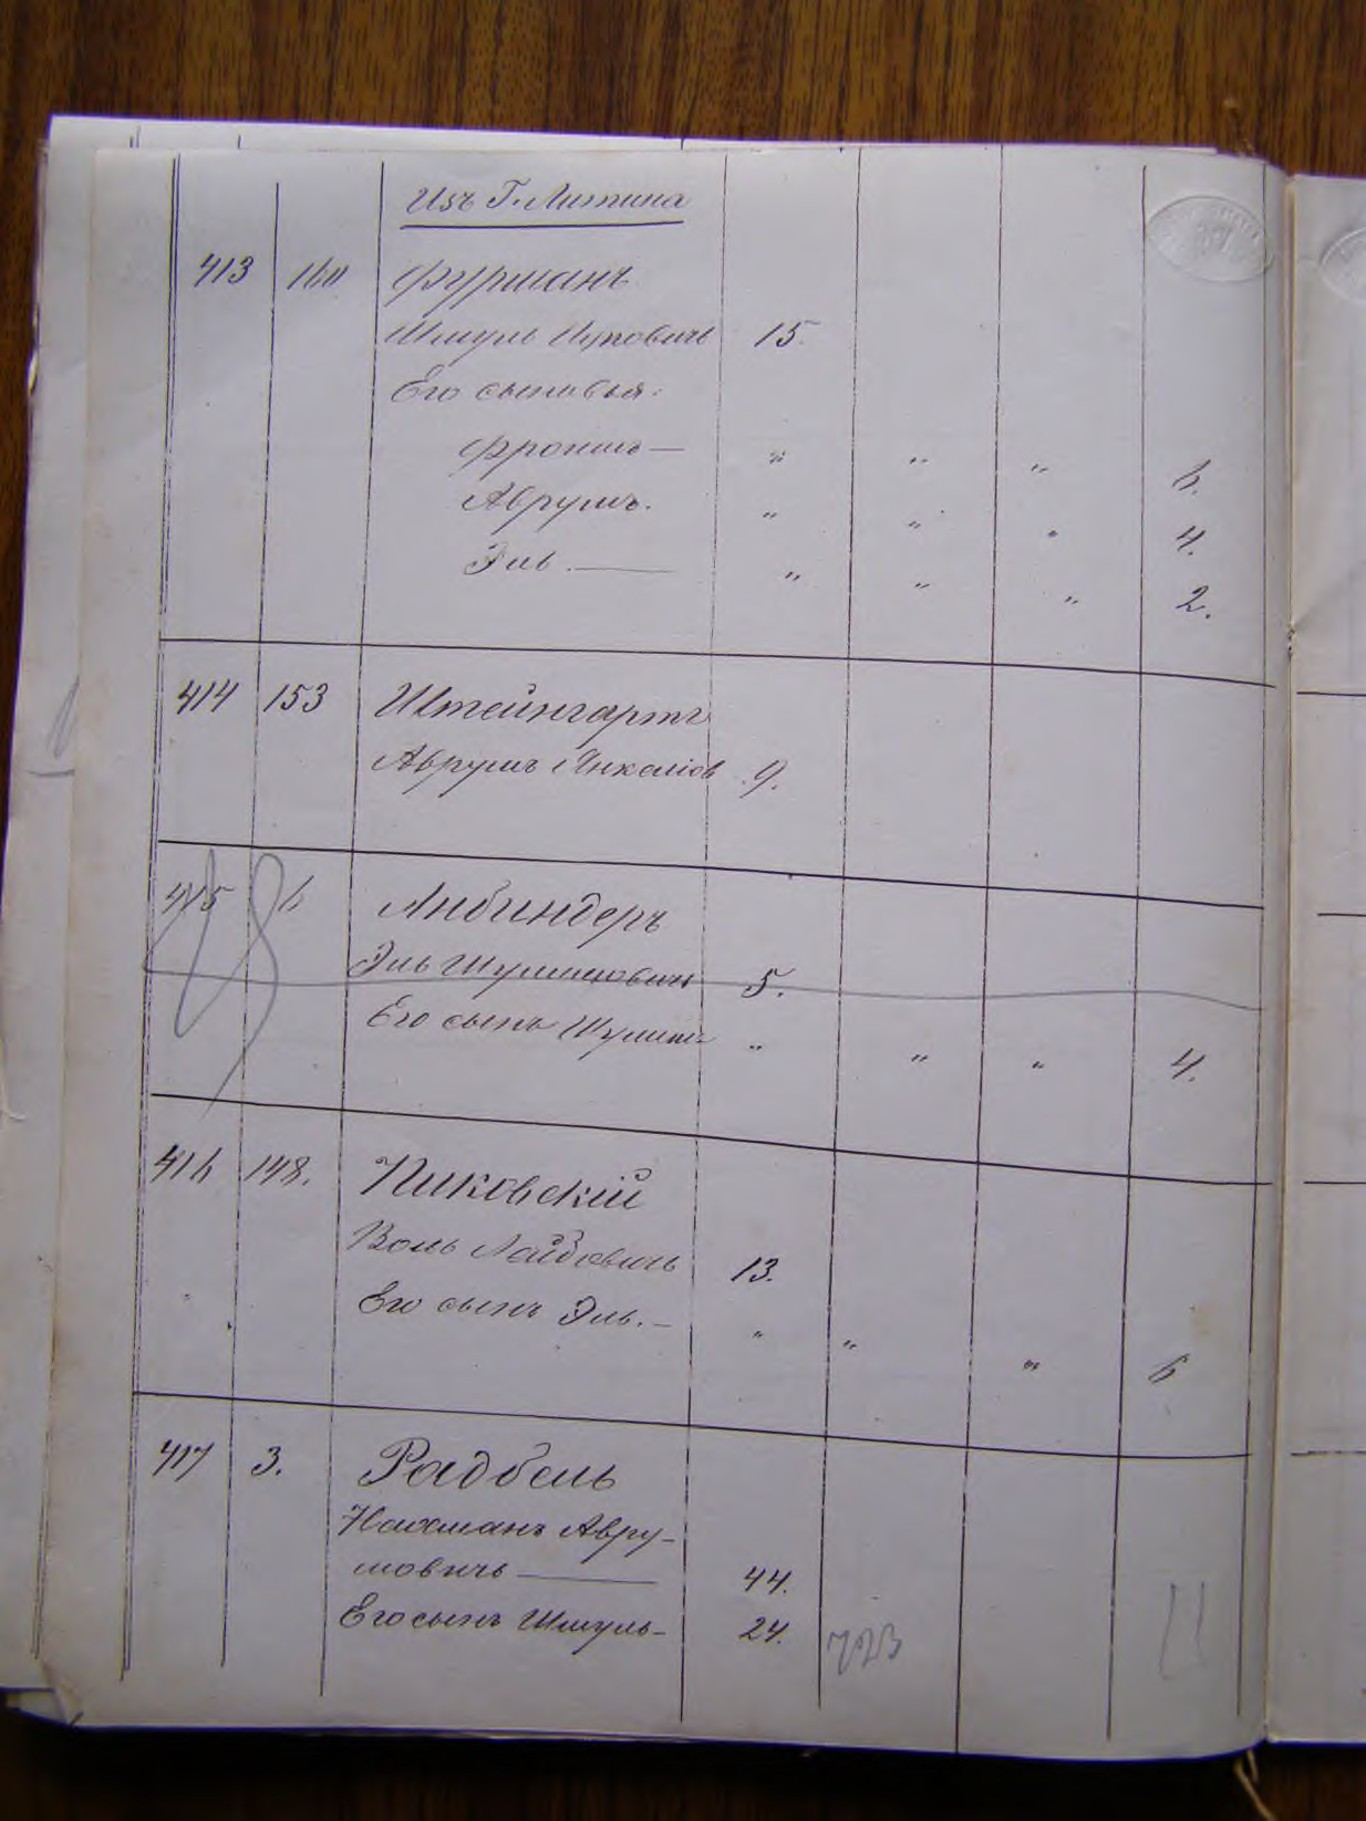 Изъ Г. Литина
413 160 Фурманъ
Шмуль Ицковичъ 15.
Его сыновья:
Фроимъ — " " " 6.
Аврумъ. " " " 4.
Эль. — " " " 2.
414 153 Штейнгартъ
Аврумъ Янкеліов 9.
415 6 Анбиндеръ
Эль Шулимовичъ 5.
Его сынъ Шулимъ " " " 4.
416 148. Пиковскій
Воль Лейбовичъ 13.
Его сынъ Эль. — " " " 6
417 3. Радбель
Нахманъ Авру-
мовичъ — 44.
Его сынъ Шмуль- 24.